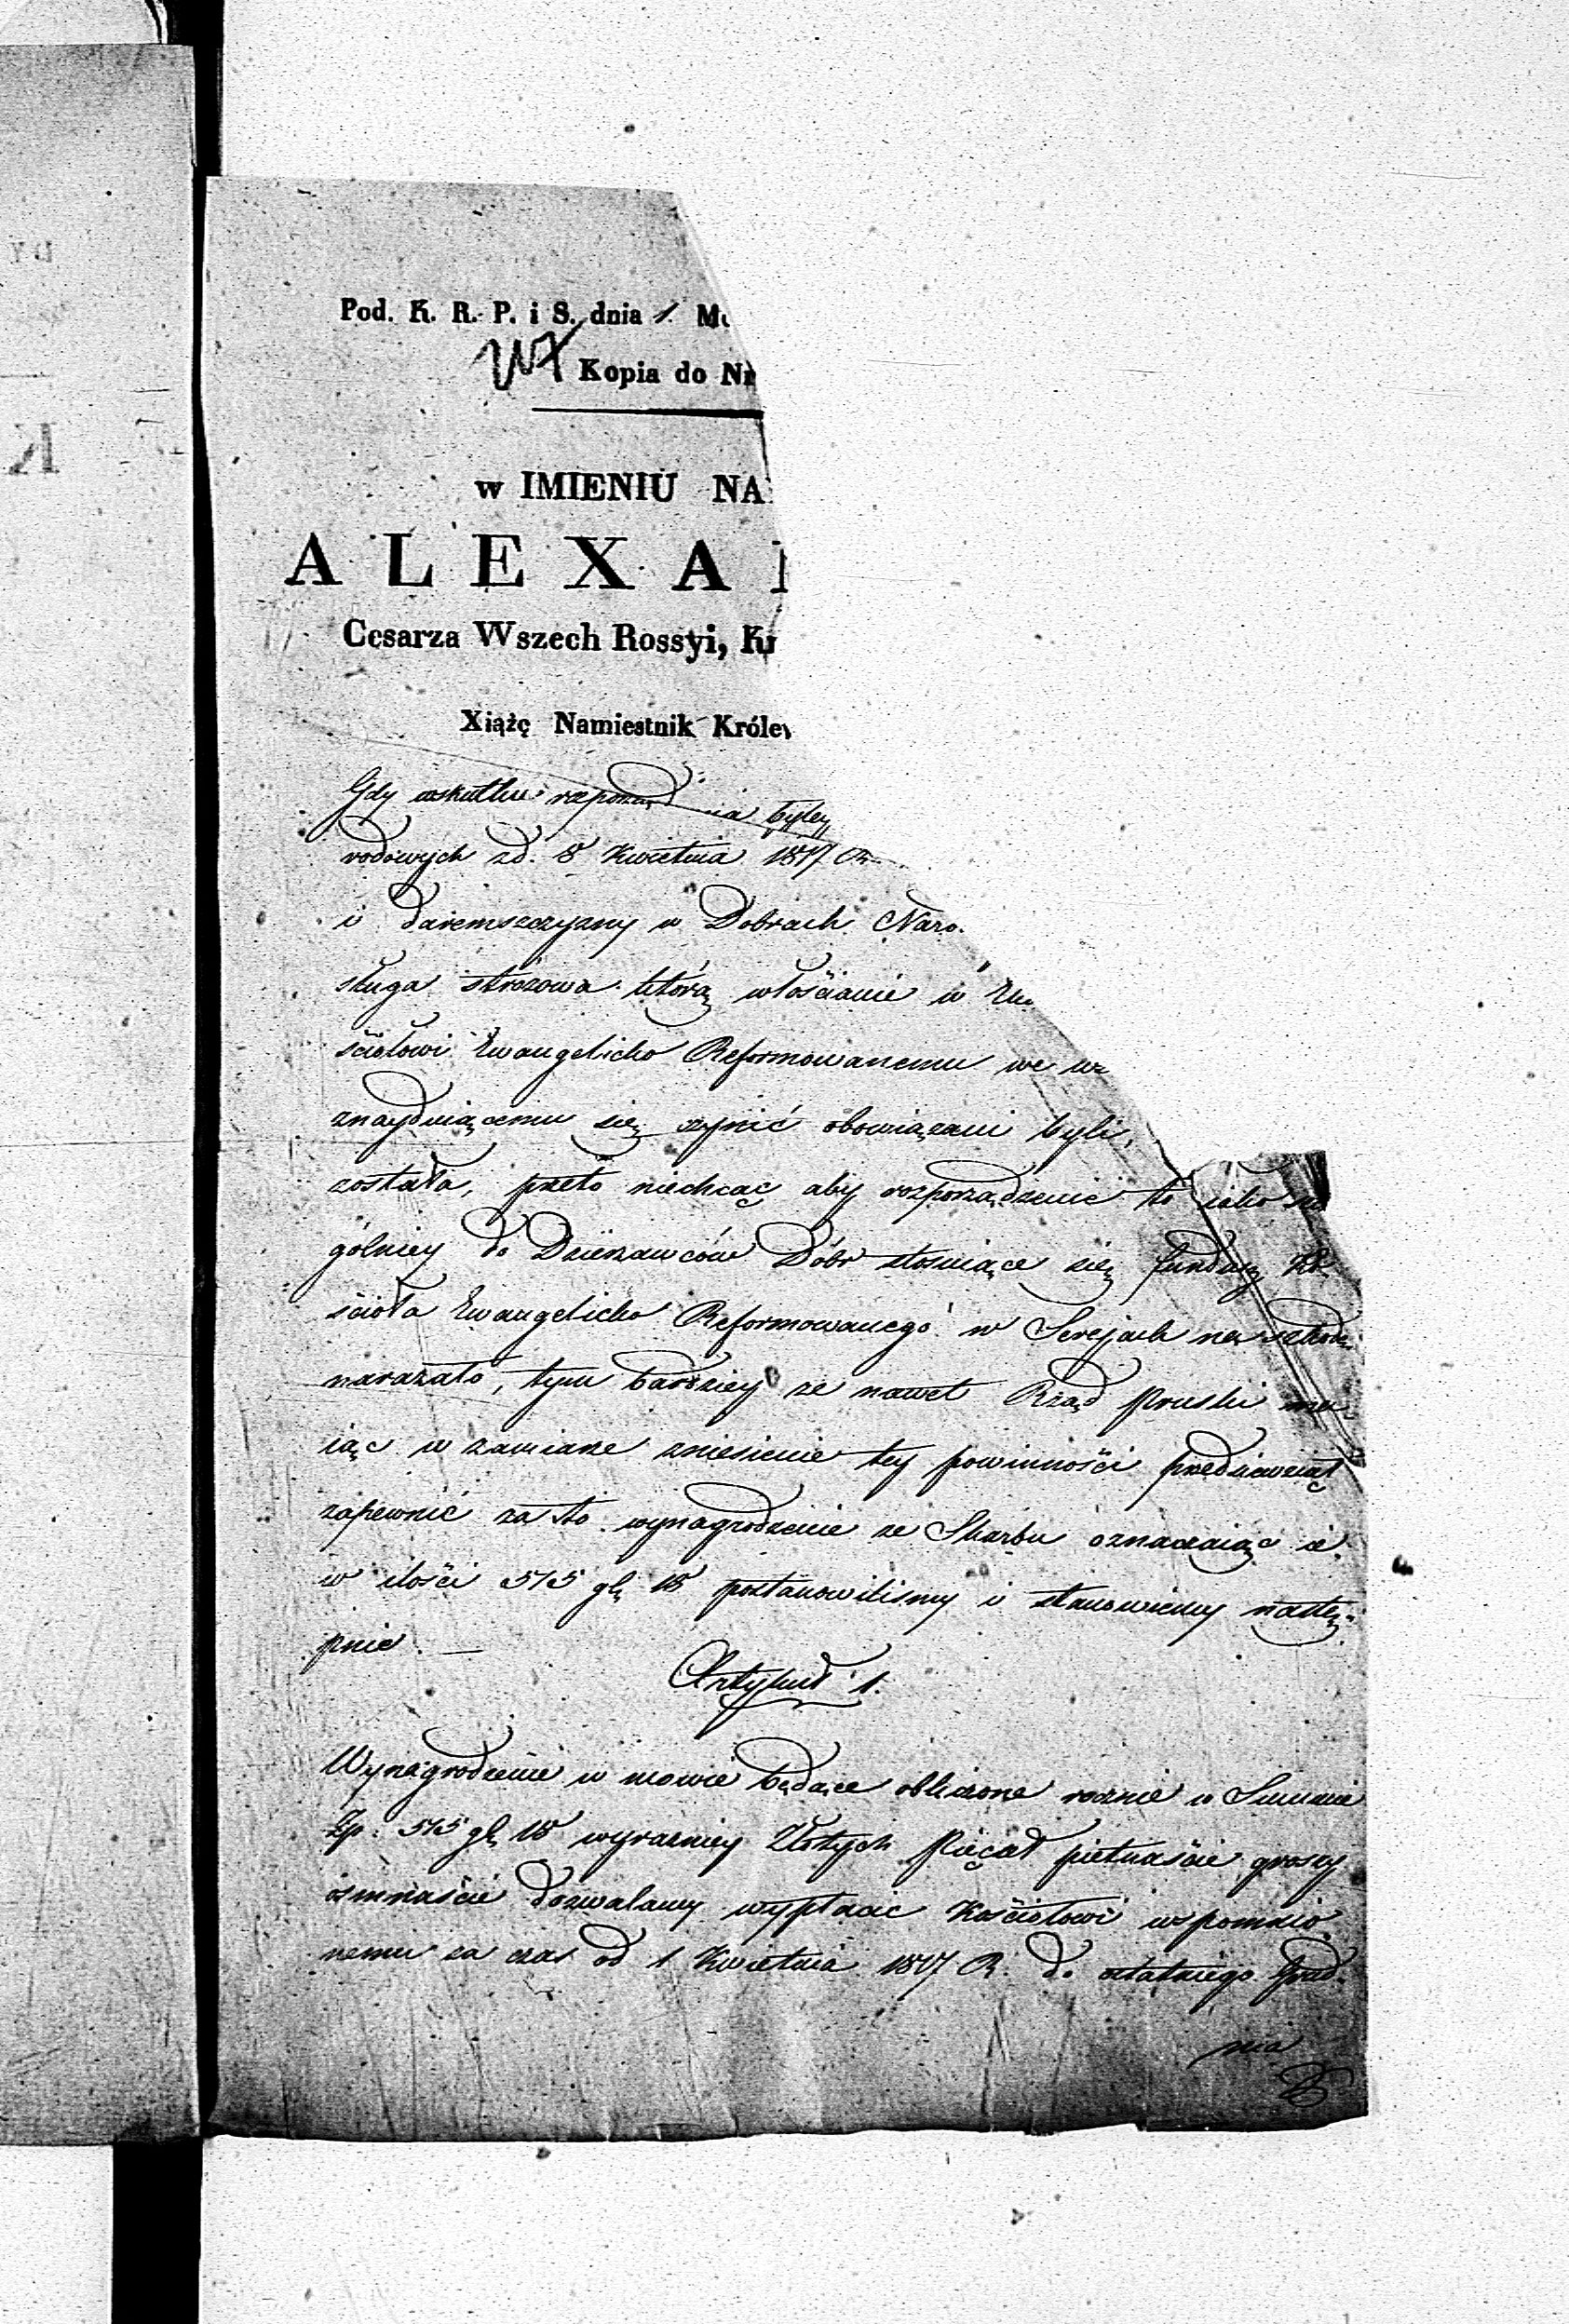 Pod. K. R. P. i S. dnia 1. M
Kopia do Nr
w IMIENIU NA
ALEXA
Cesarza Wszech Rossyi, Kr
Xiążę Namiestnik Królew
Gdy wskutku rozporząd nia byłey
rodowych z d. 8 Kwietnia 1817 R
i daremszczyzny w Dobrach Naro.
sługa stróżowa którą włościanie w
ściołowi Ewangelicko Reformowanemu we
znayduiącemu się czynić obowiązani byli,
została, przeto niechcąc aby rozporządzenie to iako
gólniey do Dzierżawców Dóbr stosuiące się fundusz Ko
ścioła Ewangelicko Reformowanego w Serejach na szkodę
narażało, tym bardziey że nawet Rząd Pruski ma
iąc w zamiarze zniesienie tey powinności przedsiewziął
zapewnić za to wynagrodzenie ze Skarbu oznaczaiąc ie
w ilości 515 gł 18 postanowiliśmy i stanowiemy nastę
pnie. —
Artykuł 1.
Wynagrodzenie w mowie będące obliczone rocznie w Summie
Zp. 515 gł 18 wyrazniey Złotych Pięćset piętnaście groszy
ośmnaście dozwalamy wypłacić Kościołowi wspomnio
nemu za czas od 1 Kwietnia 1817 R. do ostatniego Grud
nia